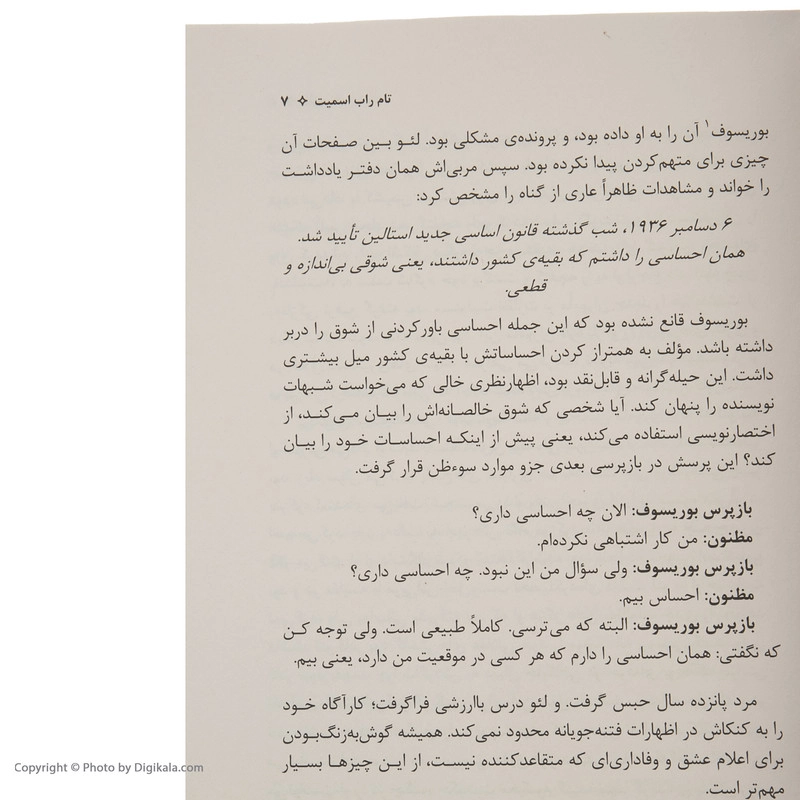 تام راب اسمیت ✧ ۷
بوریسوف۱ آن را به او داده بود، و پرونده‌ی مشکلی بود. لئو بین صفحات آن
چیزی برای متهم‌کردن پیدا نکرده بود. سپس مربی‌اش همان دفتر یادداشت
را خواند و مشاهدات ظاهراً عاری از گناه را مشخص کرد:
۶ دسامبر ۱۹۳۶، شب گذشته قانون اساسی جدید استالین تأیید شد.
همان احساسی را داشتم که بقیه‌ی کشور داشتند، یعنی شوقی بی‌اندازه و
قطعی.
بوریسوف قانع نشده بود که این جمله احساسی باورکردنی از شوق را دربر
داشته باشد. مؤلف به همتراز کردن احساساتش با بقیه‌ی کشور میل بیشتری
داشت. این حیله‌گرانه و قابل‌نقد بود، اظهارنظری خالی که می‌خواست شبهات
نویسنده را پنهان کند. آیا شخصی که شوق خالصانه‌اش را بیان می‌کند، از
اختصارنویسی استفاده می‌کند، یعنی پیش از اینکه احساسات خود را بیان
کند؟ این پرسش در بازپرسی بعدی جزو موارد سوءظن قرار گرفت.
بازپرس بوریسوف: الان چه احساسی داری؟
مظنون: من کار اشتباهی نکرده‌ام.
بازپرس بوریسوف: ولی سؤال من این نبود. چه احساسی داری؟
مظنون: احساس بیم.
بازپرس بوریسوف: البته که می‌ترسی. کاملاً طبیعی است. ولی توجه کن
که نگفتی: همان احساسی را دارم که هر کسی در موقعیت من دارد، یعنی بیم.
مرد پانزده سال حبس گرفت. و لئو درس باارزشی فراگرفت؛ کارآگاه خود
را به کنکاش در اظهارات فتنه‌جویانه محدود نمی‌کند. همیشه گوش‌به‌زنگ‌بودن
برای اعلام عشق و وفاداری‌ای که متقاعدکننده نیست، از این چیزها بسیار
مهم‌تر است.
Copyright © Photo by Digikala.com